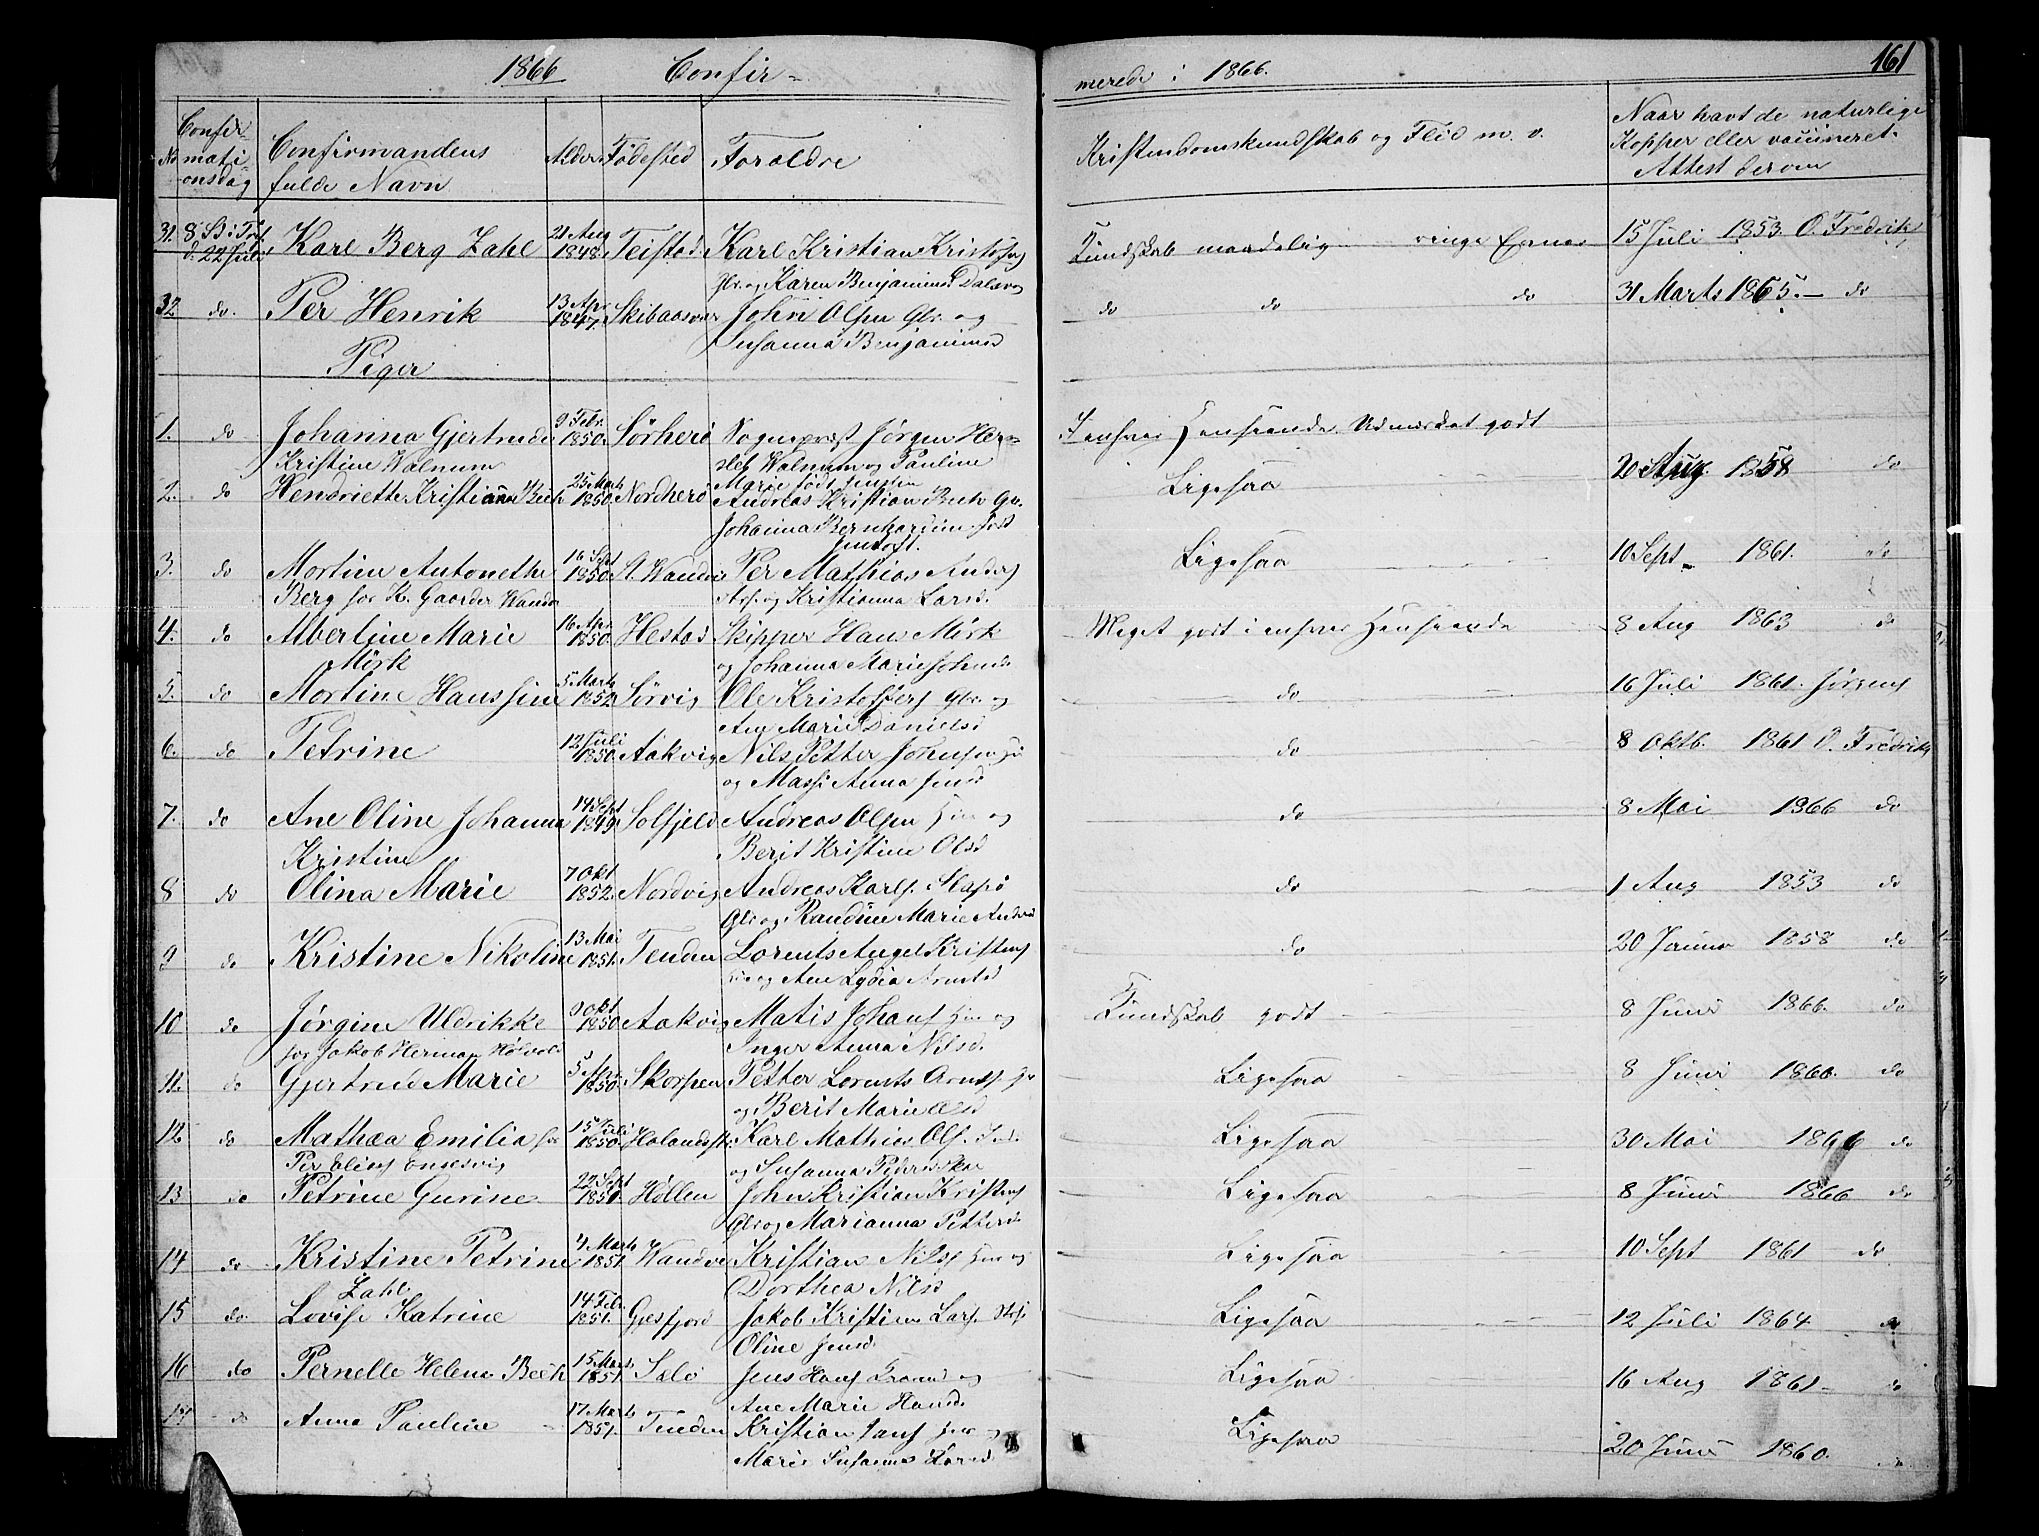 161
1866 Confir-
merede i 1866.
No Confir-
mati
onsdag
Confirmandens
fulde Navn
Alder
Fødested
Foræoldre
Kristendomskundskab og Flid m. v.
Naar havt de naturlige
Kopper eller vaccineret.
Attest derom
31. 8 S. i Tref d. 22 Juli Karl Berg Zahl 21 Aug 1848 Teistad Karl Kristian
og Karen Benjamins Kundskab maadelig ringe Evner 15 Juli 1853 O. Fredrik
32 do. Per Henrik 13 Apr. 1847 Skibaasvær John Olsen Gbr. og
Susanna Benjaminsd do do do 31 Marts 1865.— do
Piger
1. do Johanna Gjertrude 9 Febr. 1850. Sørherø Sognepræst Jørgen Her-
Kristine Walnum sleb Walnum og Pauline
Marie født Jensen I enhver Henseende Udmærket godt
2. do Hendriette Kristianna Bech 25 Marts 1850. Nordherø Andreas Kristian Bech Gbr.
Johanna Bernhardine født
Ligesaa 20 Aug. 1858 do
3. do Mortine Antonethe 16 Sept 1850. N. Wandve Per Mathias Anders
Berg for K. Gaarder Wandve og Kristianna Larsd. Ligesaa 10 Sept 1861. do
4. do Albertine Marie 16 Apr. 1850. Hestad Skipper Hans Mörk
Mörk og Johanna Marie Johnsd Meget godt i enhver Henseende 8 Aug 1863 do
5. do Mortine Hanssine 5 Marts 1852. Sørvig Ole Kristoffers Gbr. og
Ane Marie Danielsd do 16 Juli 1861. Jørgens
6. do Petrine 12 Juli 1850. Aakvig Nils Petter Johnsen
og Massi Anna Jensd do 8 Oktb. 1861 O. Fredrik
7. do Ane Oline Johanna 14 Sept 1849. Solfjeld Andreas Olsen Hm og
Kristine Berit Kristine Olsd do 8 Mai 1866 do
8 do Olina Marie 7 Okt 1852. Nordvig Andreas Karls.
Gbr og Randine Marie Andersd do 1 Aug 1853 do
9 do Kristine Nikoline 13 Mai 1851. Tenden Lorents Angel Kristens
og Ane Lydia Arntsd do 20 Januar 1858 do
10 do Jørgine Uldrikke 9 Okt 1850 Aakvig Matis Johans Hm og
for Jakob Herman Inger Anna Nilsd. Kundskab godt 8 Juni 1866. do
11. do Gjertrud Marie 5 Apr. 1850. Skorpen Petter Lorents Arnts.
og Berit Marie Olsd Ligesaa 8 Juni 1866. do
12 do Mathæa Emilia for 15 Juli 1850. Karl Mathias Ols.
Per Elias og Susanna Peders Ligesaa 30 Mai 1866 do
13 do Petrine Gurine 22 Sept 1850. Høllen John Kristian Kristens
Gbr og Marianna Pettersd Ligesaa 8 Juni 1866 do
14 do Kristine Petrine 4 Marts 1851. Wandve Kristian Nils Hm og
Zahl Dorthea Nilsd Ligesaa 10 Sept 1861 do
15 do. Lovise Katrine 14 Febr. 1851. Gjesfjord Jakob Kristian Lars.
Oline Jensd Ligesaa 12 Juli 1864 do
16 do Pernelle Helene Bech 15 Marts 1851 Sølø Jens Hans og
Ane Marie Hansd. Ligesaa 16 Aug 1861 do
17 do Anna Pauline 17 Marts 1851. Tenden Kristian Hm og
Marie Susanna Larsd Ligesaa 20 Juni 1860. do